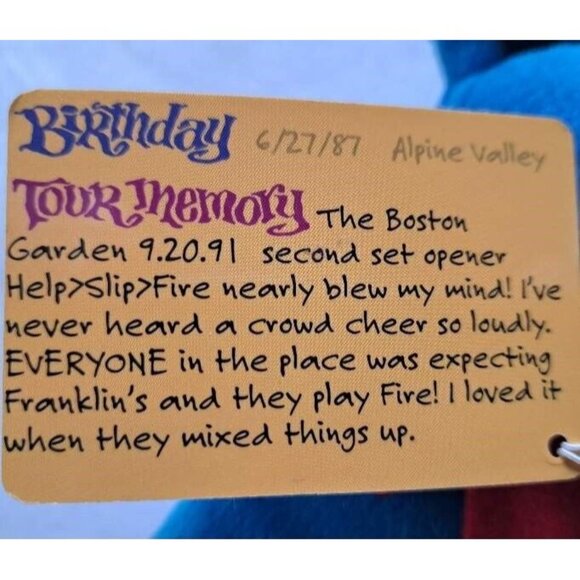 Birthday 6/27/87 Alpine Valley
Tour Memory The Boston
Garden 9.20.91 second set opener
Help>Slip>Fire nearly blew my mind! I've
never heard a crowd cheer so loudly.
EVERYONE in the place was expecting
Franklin's and they play Fire! I loved it
when they mixed things up.